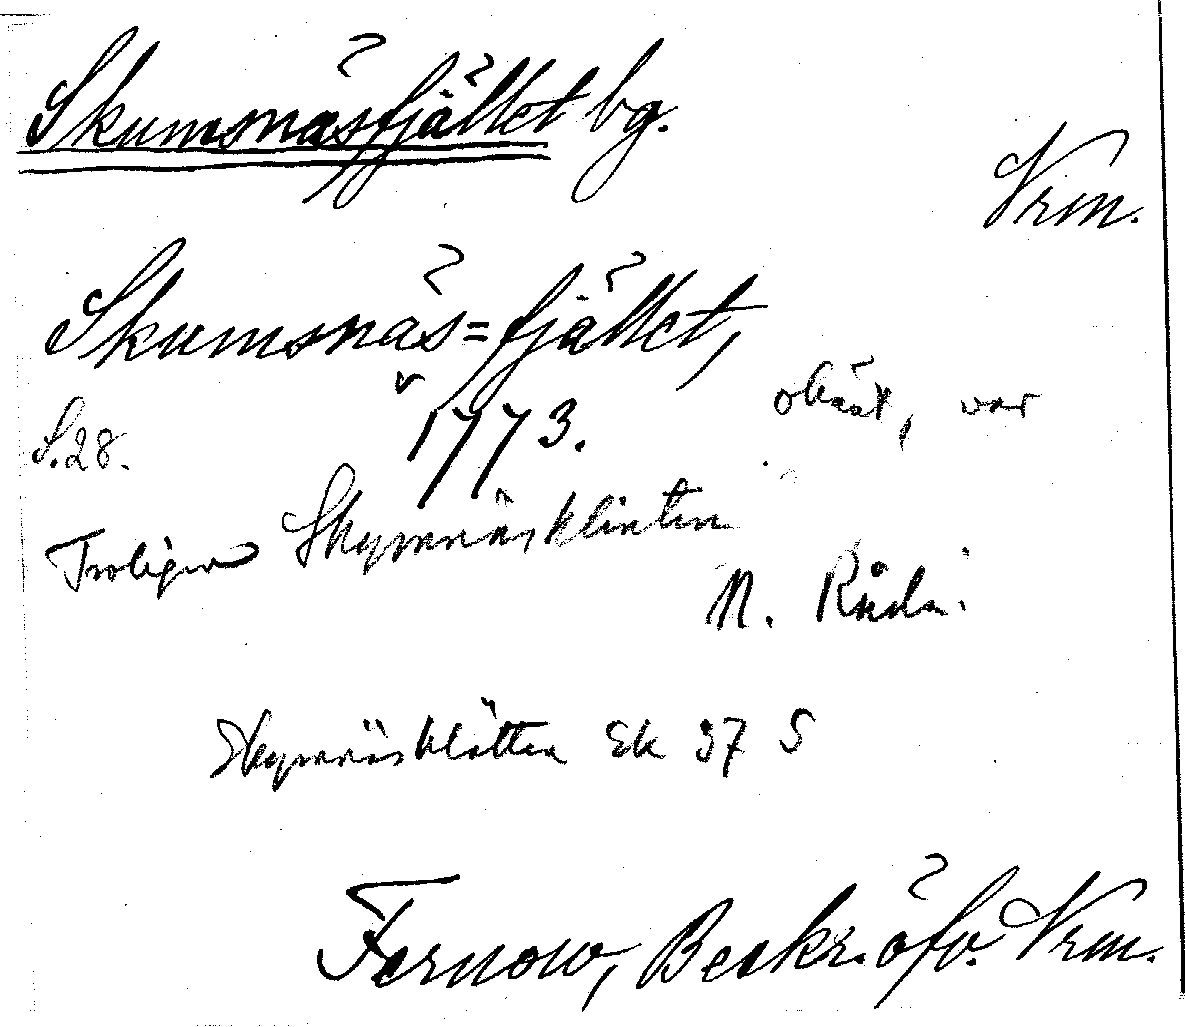 Skumsnäsfjället bg.
Vrm.
Skumsnäs=fjället,
1773.
obest, var
S. 28.
Troligen Skymnäsklinten
N. Råda.
Skymnäsklätten Ek 37 S
Fernow, Beskr. öfv. Vrm.